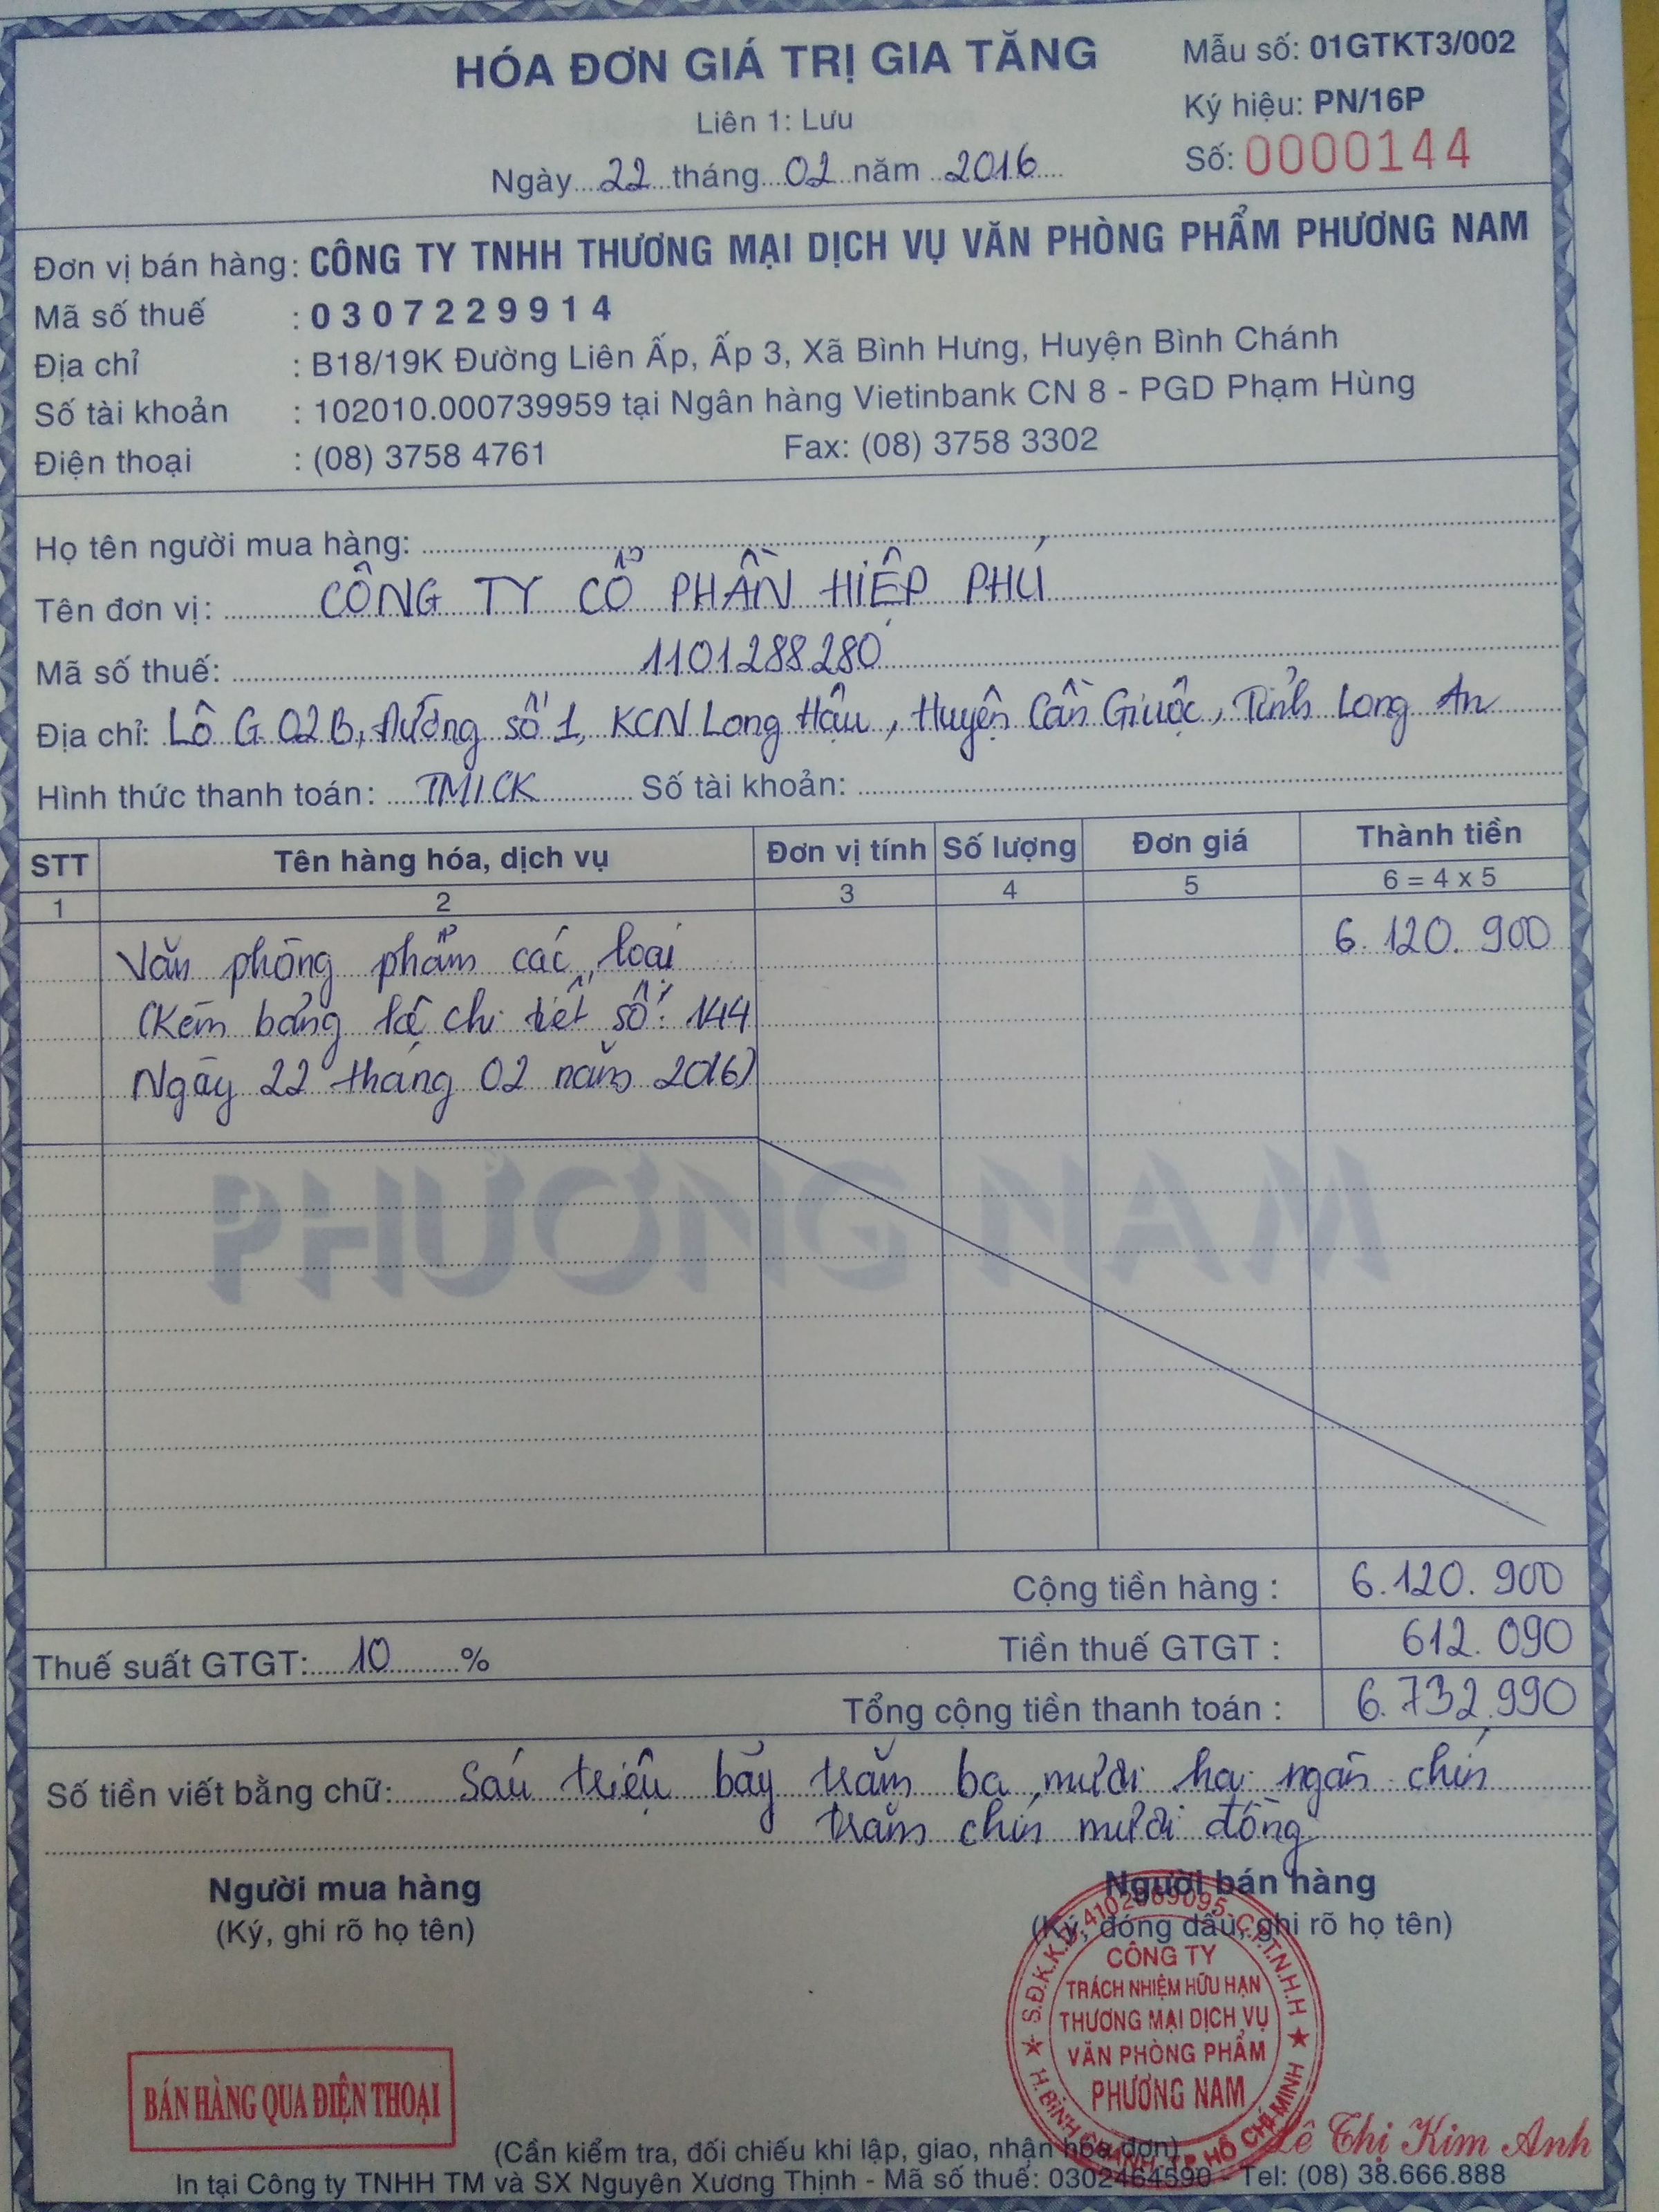 HÓA ĐƠN GIÁ TRỊ GIA TĂNG
Mẫu số: 01GTKT3/002
Liên 1: Lưu
Ký hiệu: PN/16P
Ngày 22 tháng 02 năm 2016
Số: 0000144
Đơn vị bán hàng: CÔNG TY TNHH THƯƠNG MẠI DỊCH VỤ VĂN PHÒNG PHẨM PHƯƠNG NAM
Mã số thuế : 0307229914
Địa chỉ : B18/19K Đường Liên Ấp, Ấp 3, Xã Bình Hưng, Huyện Bình Chánh
Số tài khoản : 102010.000739959 tại Ngân hàng Vietinbank CN 8 - PGD Phạm Hùng
Điện thoại : (08) 3758 4761 Fax: (08) 3758 3302
Họ tên người mua hàng:
Tên đơn vị: CÔNG TY CỔ PHẦN HIỆP PHÚ
Mã số thuế: 1101288280
Địa chỉ: Lô G 02B, Đường số 1, KCN Long Hậu, Huyện Cần Giuộc, Tỉnh Long An
Hình thức thanh toán: TM/CK Số tài khoản:
STT Tên hàng hóa, dịch vụ Đơn vị tính Số lượng Đơn giá Thành tiền
1 2 3 4 5 6 = 4 x 5
Văn phòng phẩm các loại 6.120.900
(Kèm bảng kê chi tiết số: 144
Ngày 22 tháng 02 năm 2016)
PHƯƠNG NAM
Cộng tiền hàng : 6.120.900
Thuế suất GTGT: 10 % Tiền thuế GTGT : 612.090
Tổng cộng tiền thanh toán : 6.732.990
Số tiền viết bằng chữ: Sáu triệu bảy trăm ba mươi hai ngàn chín
trăm chín mươi đồng
Người mua hàng Người bán hàng
(Ký, ghi rõ họ tên) (Ký, đóng dấu, ghi rõ họ tên)
S.Đ.K.K.D: 4102069095-C.T.T.N.H.H
CÔNG TY
TRÁCH NHIỆM HỮU HẠN
THƯƠNG MẠI DỊCH VỤ
VĂN PHÒNG PHẨM
PHƯƠNG NAM
H. BÌNH CHÁNH - T.P HỒ CHÍ MINH
BÁN HÀNG QUA ĐIỆN THOẠI
Lê Thị Kim Anh
(Cần kiểm tra, đối chiếu khi lập, giao, nhận hóa đơn)
In tại Công ty TNHH TM và SX Nguyên Xương Thịnh - Mã số thuế: 0302464590 - Tel: (08) 38.666.888